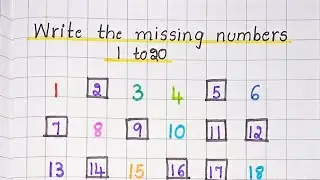 Write the missing numbers
1 to 20
1 2 3 4 5 6
7 8 9 10 11 12
13 14 15 16 17 18